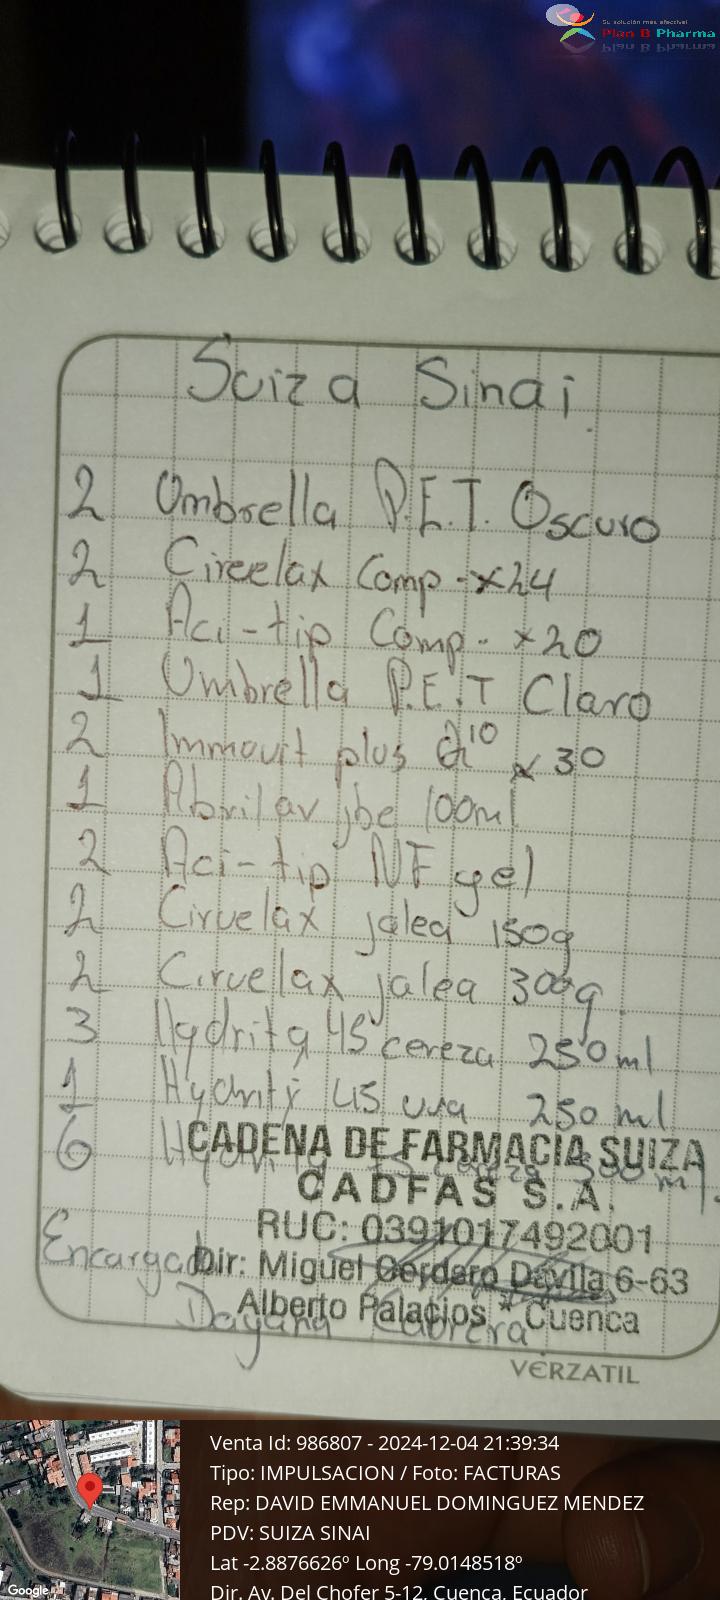 Su solución más efectiva!
Plan B Pharma
Suiza Sinai.
2 Umbrella P.E.T. Oscuro
2 Cireelax Comp - x24
1 Aci-tip Comp - x20
1 Umbrella P.E.T Claro
2 Immuvit plus Q10 x 30
1 Abrilar jbe 100ml
2 Aci-tip NF gel
2 Ciruelax jalea 150g
2 Ciruelax jalea 300g.
3 45 cereza 250ml
1 45 uva 250 ml
6
CADENA DE FARMACIA SUIZA
CADFAS S.A.
RUC: 0391017492001
Dir: Miguel Cordero Davila 6-63
Alberto Palacios * Cuenca
Encargad
Dayana Cabrera
VERZATIL
Venta Id: 986807 - 2024-12-04 21:39:34
Tipo: IMPULSACION / Foto: FACTURAS
Rep: DAVID EMMANUEL DOMINGUEZ MENDEZ
PDV: SUIZA SINAI
Lat -2.8876626º Long -79.0148518º
Dir. Av. Del Chofer 5-12, Cuenca, Ecuador
Google